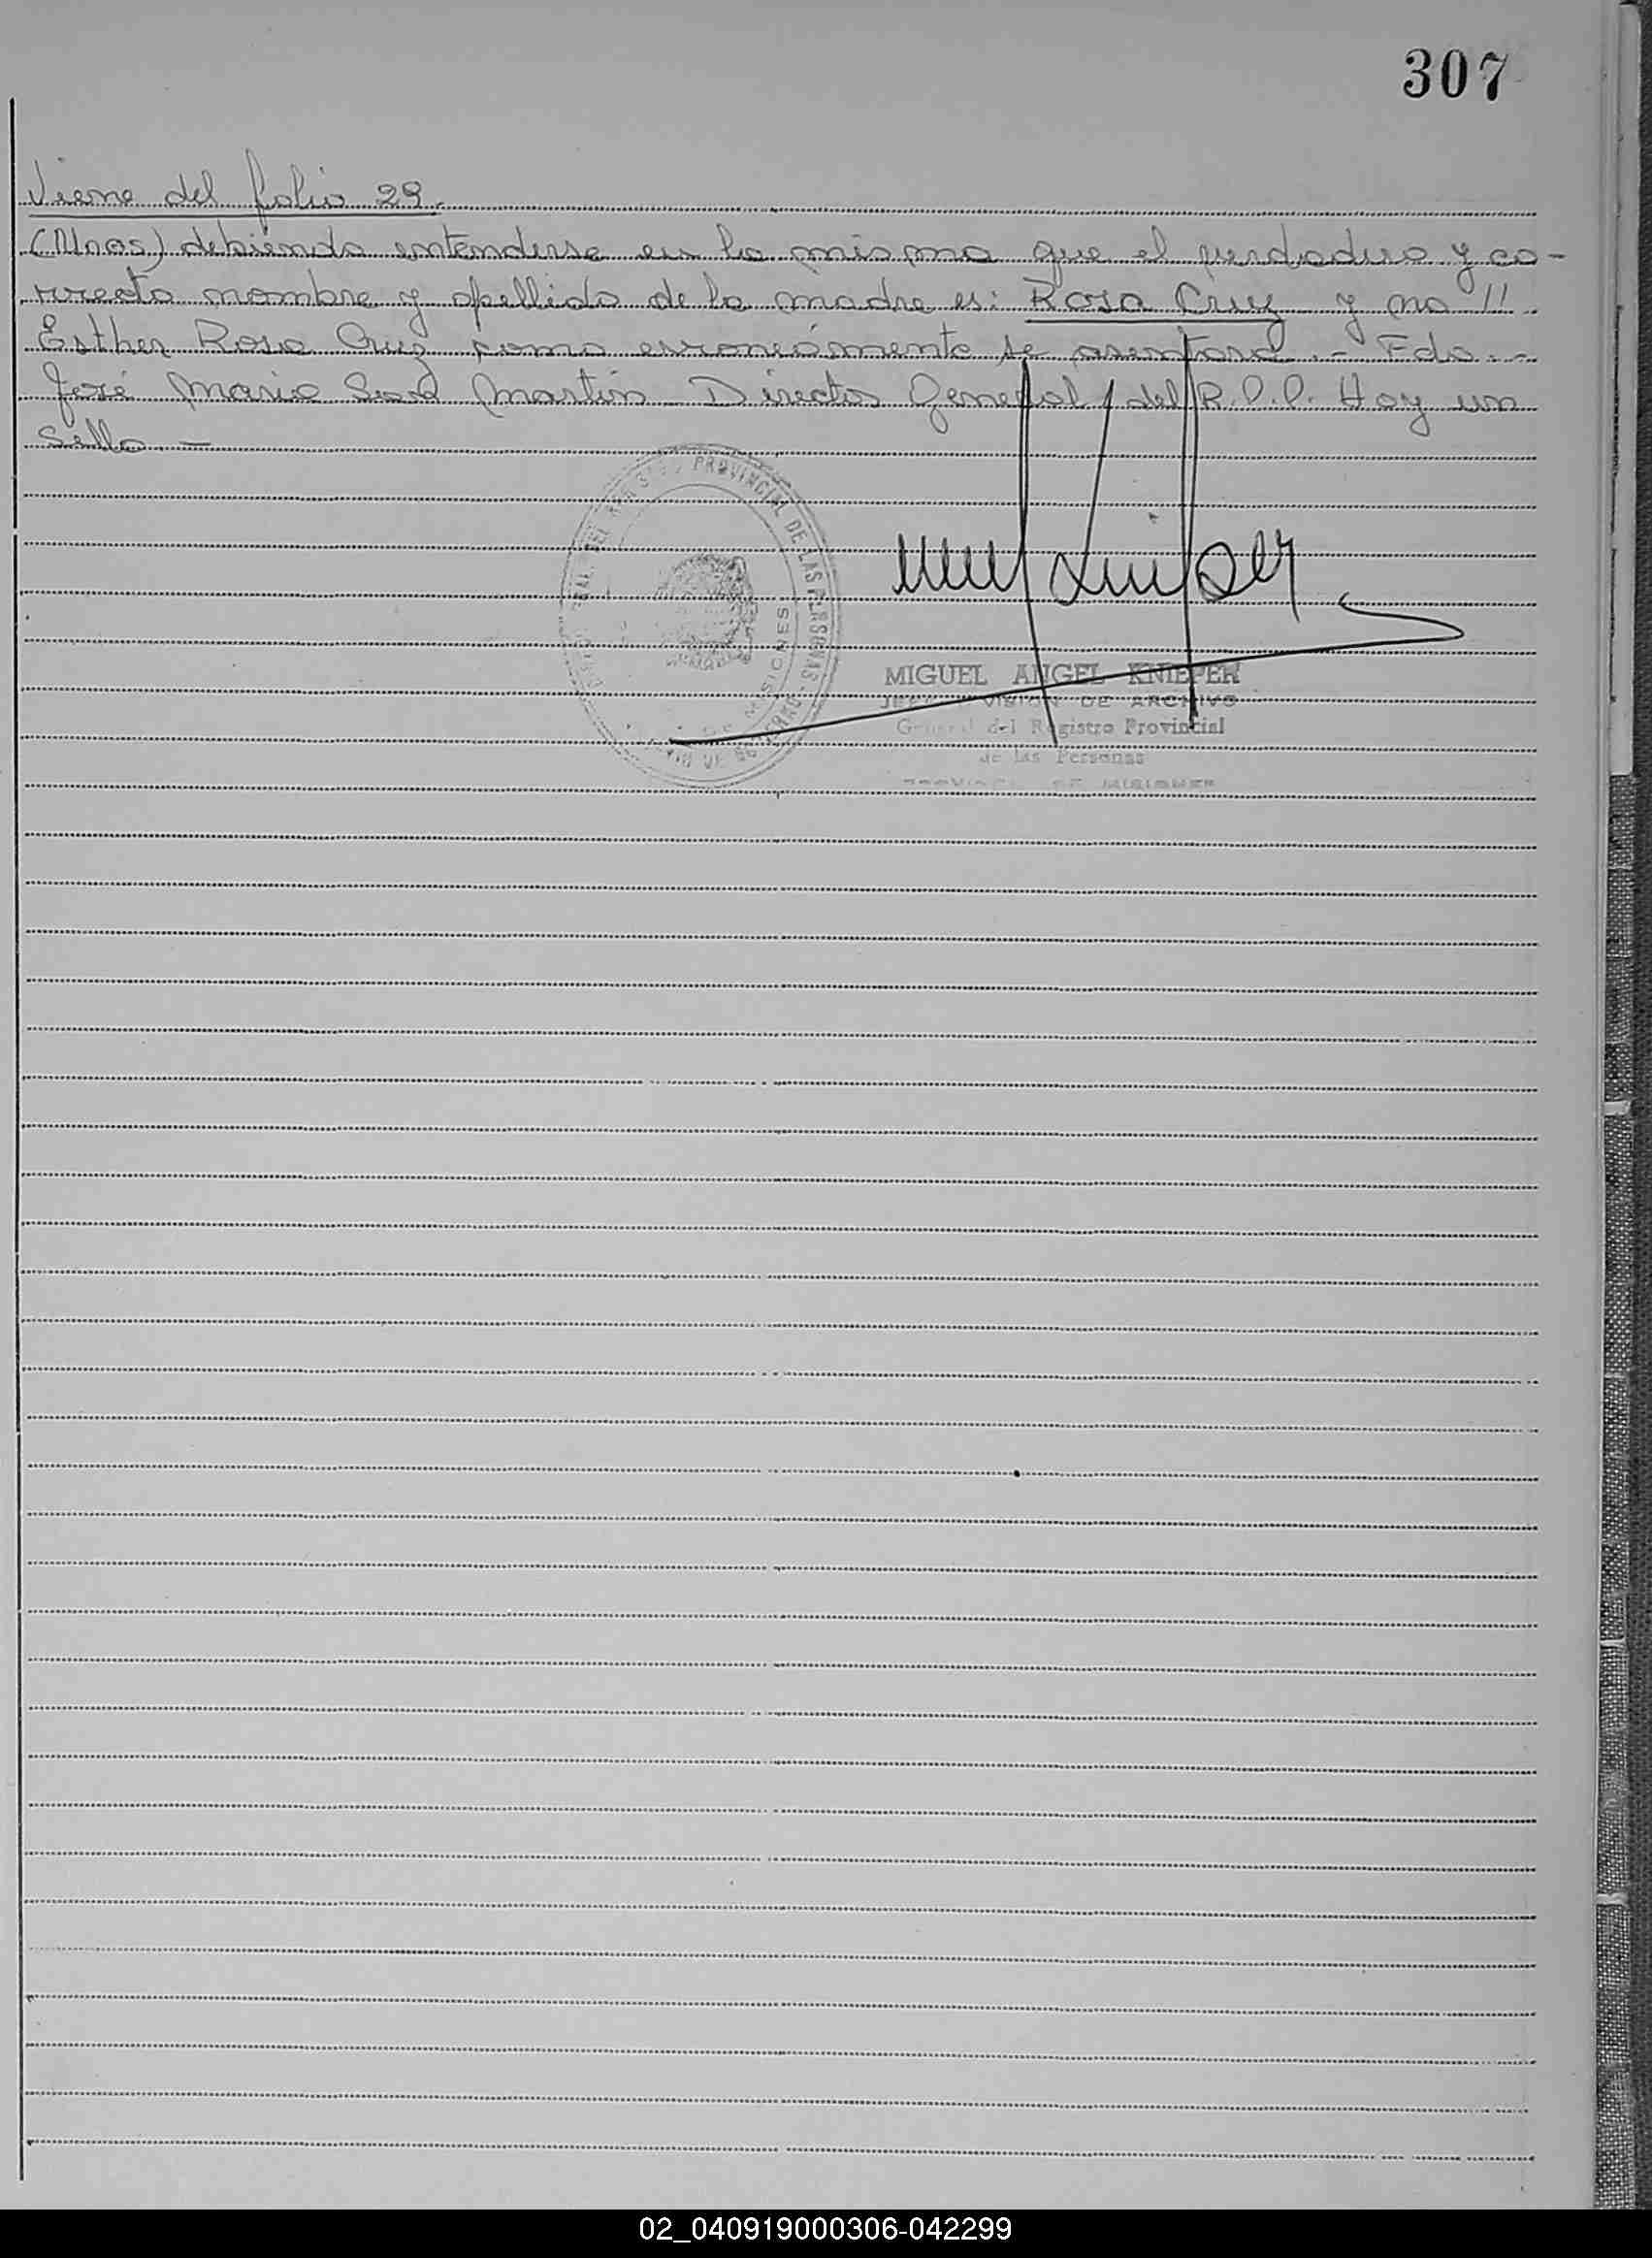 307
Viene del folio 29.
(Mnes) debiendo entenderse en la misma que el verdadero y co-
rrecto nombre y apellido de la madre es: Rosa Cruz y no //
Esther Rosa Cruz como erroneamente se asentara.- Fdo.-
José Maria San Martin Director General del R.P.P. Hay un
sello.-
PROVINCIAL DE LAS PERSONAS
MISIONES
MIGUEL ANGEL KNIEPER
JEFE DIVISION DE ARCHIVO
General del Registro Provincial
de las Personas
PROVINCIA DE MISIONES
02_040919000306-042299